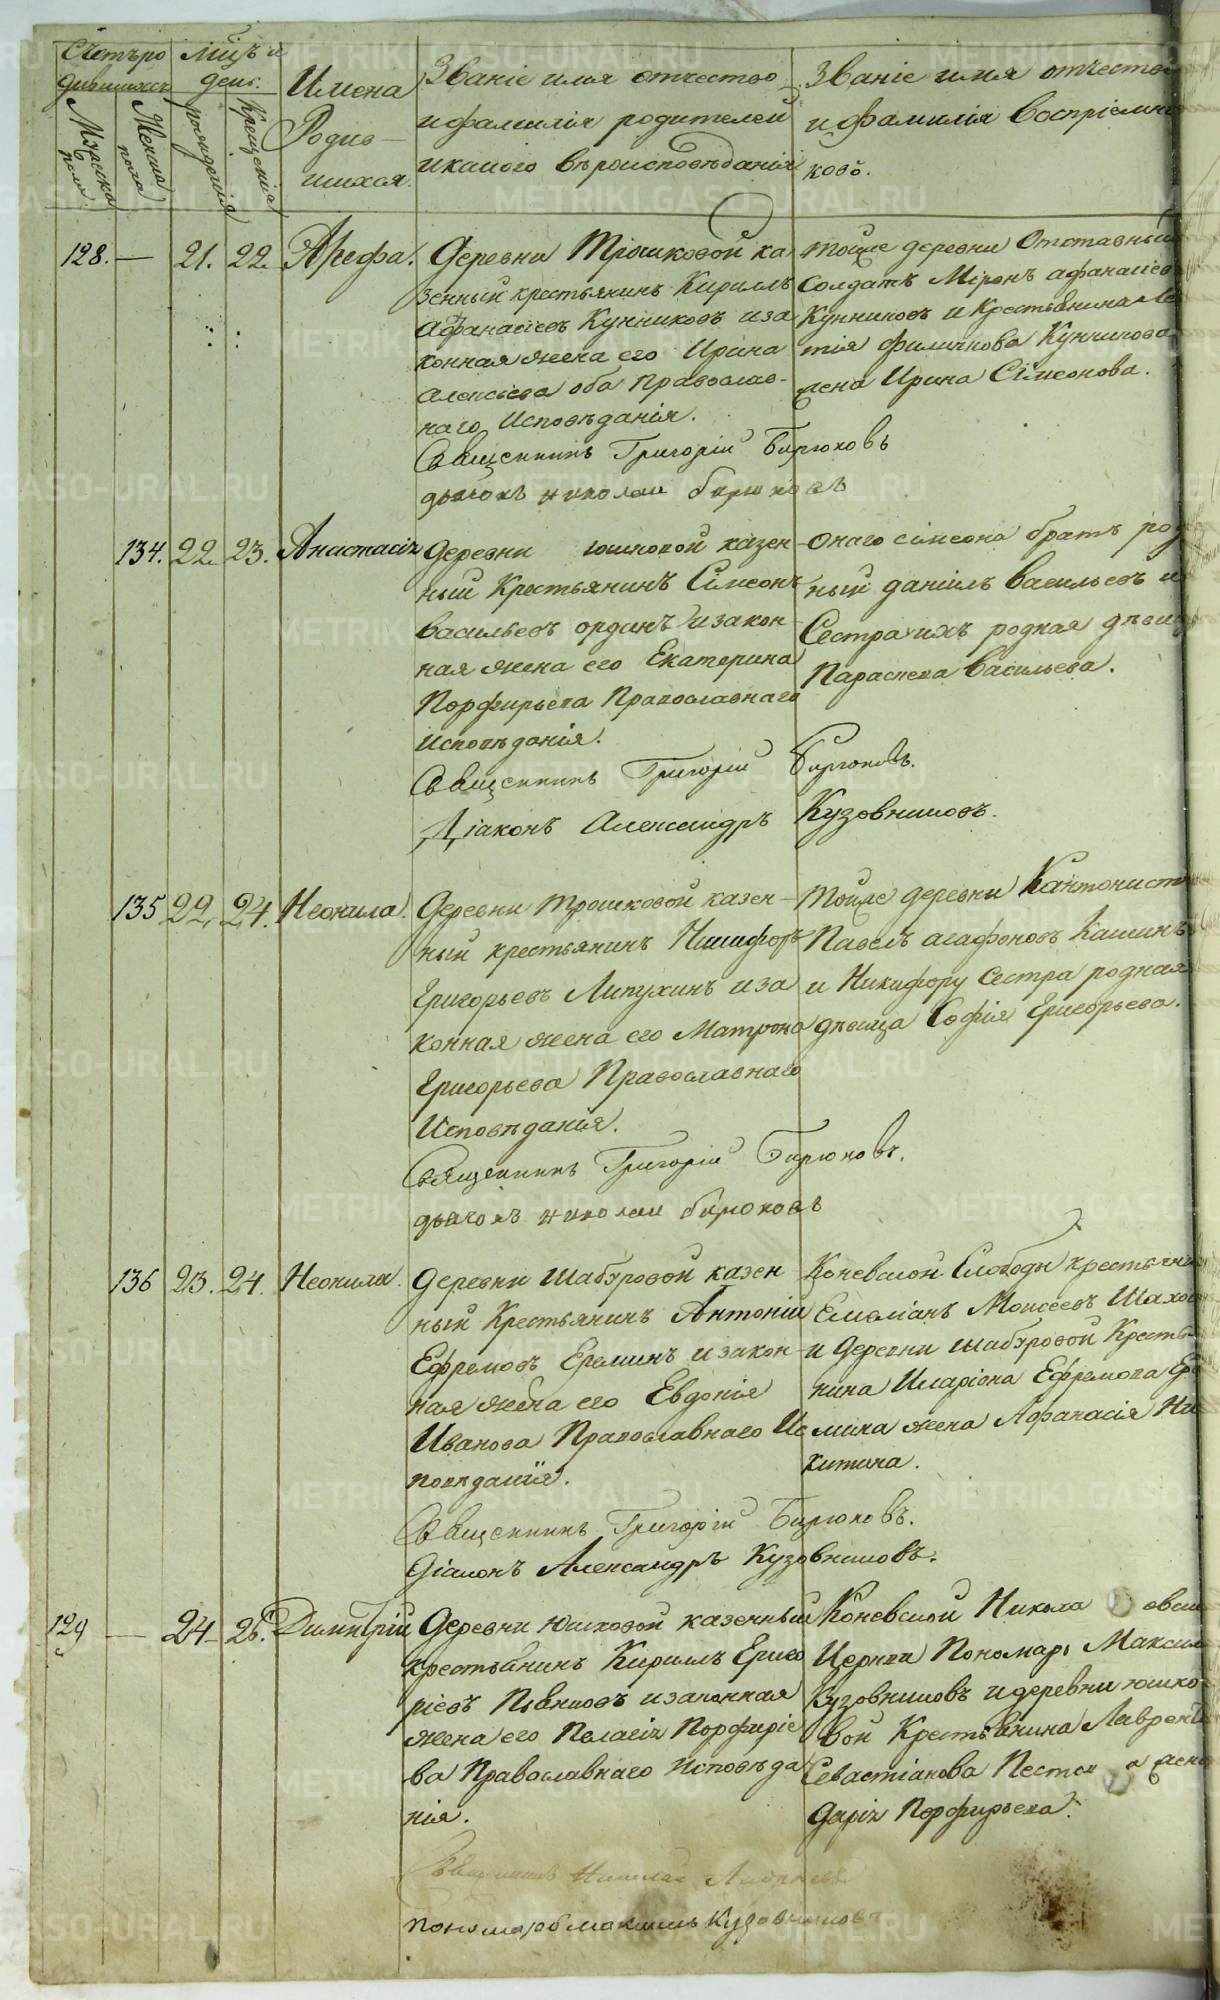 Счетъ ро
дившихся
Мѣсяцъ и
день.
Мужска
пола
Женска
пола
рожденія
крещенія
Имена
Родив-
шихся.
Званіе имя отчество
и фамилія родителей
и какого вѣроисповѣданія
Званіе имя отчество
и фамилія воспріемни
ковъ.
128. — 21. 22. Арефа.
Деревни Трошковой ка
зенный крестьянинъ Кириллъ
Афанасіевъ Кунниковъ и за
конная жена его Ирина
Алексіева оба Православ-
наго Исповѣданія.
Священникъ Григорій Бирюковъ
дьячокъ николай бирюковъ
тойже деревни Отставный
солдатъ Міронъ Афанасіев
Кунниковъ и Крестьянина
тія Филичкова Кунникова
жена Ирина Сімеонова.
134. 22. 23. Анастасія
Деревни юшковой казен-
ный Крестьянинъ Сімеонъ
васильевъ ординъ и закон-
ная жена его Екатерина
Порфирьева Православнаго
исповѣданія.
Священникъ Григорій Бирюковъ.
Діаконъ Александръ Кузовниковъ.
Онаго сімеона братъ род
ный даніилъ Васильевъ и
Сестра ихъ родная дѣвица
Параскева Васильева.
135 22. 24. Неонила.
Деревни Трошковой казен-
ный крестьянинъ Никифоръ
Григорьевъ Липухинъ и за
конная жена его Матрона
Григорьева Православнаго
Исповѣданія.
Священникъ Григорій Бирюковъ.
дьячокъ николай бирюковъ
Тойже деревни Кантонистъ
Павелъ агафоновъ Кашинъ
и Никифору Сестра родная
дѣвица Софія Григорьева.
136 23. 24. Неонила.
Деревни Шабуровой казен
ный Крестьянинъ Антоній
Ефремовъ Ереминъ и закон-
ная жена его Евдокія
Иванова Православнаго Ис
повѣданія.
Священникъ Григорій Бирюковъ.
Діаконъ Александръ Кузовниковъ.
Коневской Слободы крестьянин
Емеліанъ Моисеевъ Шахов
и Деревни Шабуровой Кресть
нина Иларіона Ефремова Ере
мина жена Афанасія Ни
китина.
129 — 24. 26. Димитрій
Деревни Юшковой казенный
крестьянинъ Кириллъ Григо
ріевъ Пѣвновъ и законная
жена его Пелагія Порфиріе
ва Православнаго Исповѣда
нія.
Священникъ Николай
пономарь максимъ кузовниковъ
Коневской Никола евск
Церкви Пономарь Максим
Кузовниковъ и деревни юшко
вой Крестьянина Лаврент
Севастіанова жена
Дарія Порфирьева.